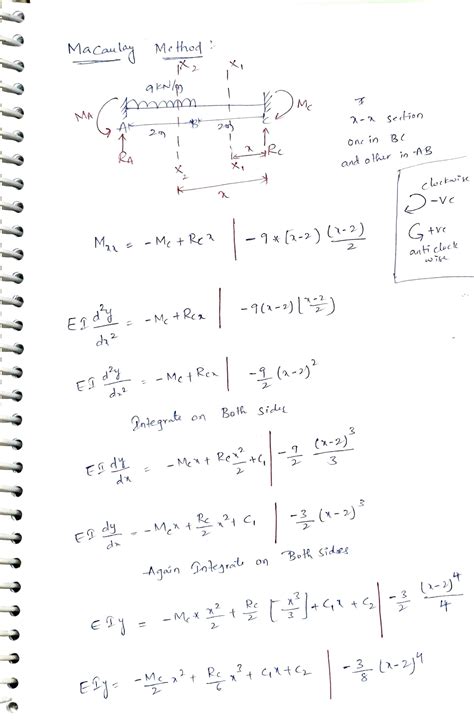 Macaulay Method :
x₂ x₁
9KN/m
M_A M_C
A B C
2m 2m
R_A x R_C
x₁
x₂
x
x-x section
one in BC
and other in AB
clockwise
-ve
+ve
anti clock
wise
M_xx = -M_C + R_C x | -9 * (x-2) (x-2)/2
EI d²y/dx² = -M_C + R_C x | -9(x-2) (x-2/2)
EI d²y/dx² = -M_C + R_C x | -9/2 (x-2)²
Integrate on Both sides
EI dy/dx = -M_C x + R_C x²/2 + C₁ | -9/2 (x-2)³/3
EI dy/dx = -M_C x + R_C/2 x² + C₁ | -3/2 (x-2)³
Again Integrate on Both sides
EIy = -M_C x x²/2 + R_C/2 [x³/3] + C₁x + C₂ | -3/2 (x-2)⁴/4
EIy = -M_C/2 x² + R_C/6 x³ + C₁x + C₂ | -3/8 (x-2)⁴